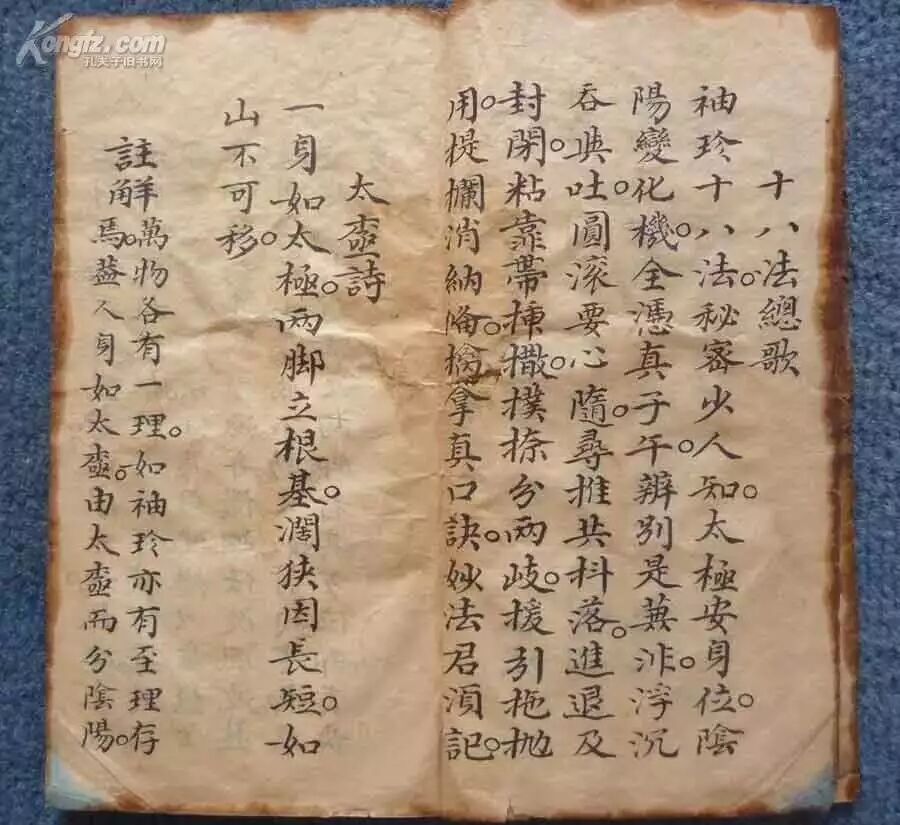 Kongfz.com
孔夫子旧书网
十八法總歌
袖珍十八法。秘密少人知。太極安身位。陰
陽變化機。全憑真子午。辨別是兼非。浮沉
吞與吐。圓滚要心隨。尋推共科落。進退及
封閉。粘靠帶插撒。撲捺分兩岐。援引拖拋
用。提攔消納。擒拿真口訣。妙法君須記。
太盃詩
一身如太極。兩脚立根基。濶狹因長短。如
山不可移。
註解
萬物各有一理。如袖珍亦有至理存
焉。蓋人身如太。由太而分陰陽。